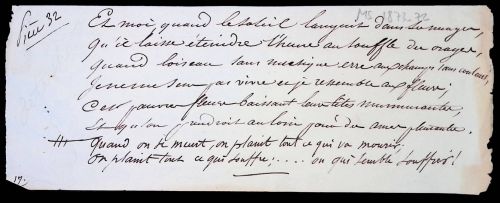 Pièce 32
MS 1877-32
Et moi, quand le soleil languit dans le nuage,
Qu'il laisse éteindre l'heure au souffle de orage,
Quand l'oiseau sans musique erre aux champs sans couleur,
Je ne me sens pas vivre et je ressemble aux fleurs;
Ces pauvres fleurs baissant leurs têtes murmurantes,
Et qu'on prendroit au loin pour des ames pleurantes.
Quand on se meurt, on plaint tout ce qui va mourir;
On plaint tout ce qui souffre;..... ou qui semble souffrir!
17.